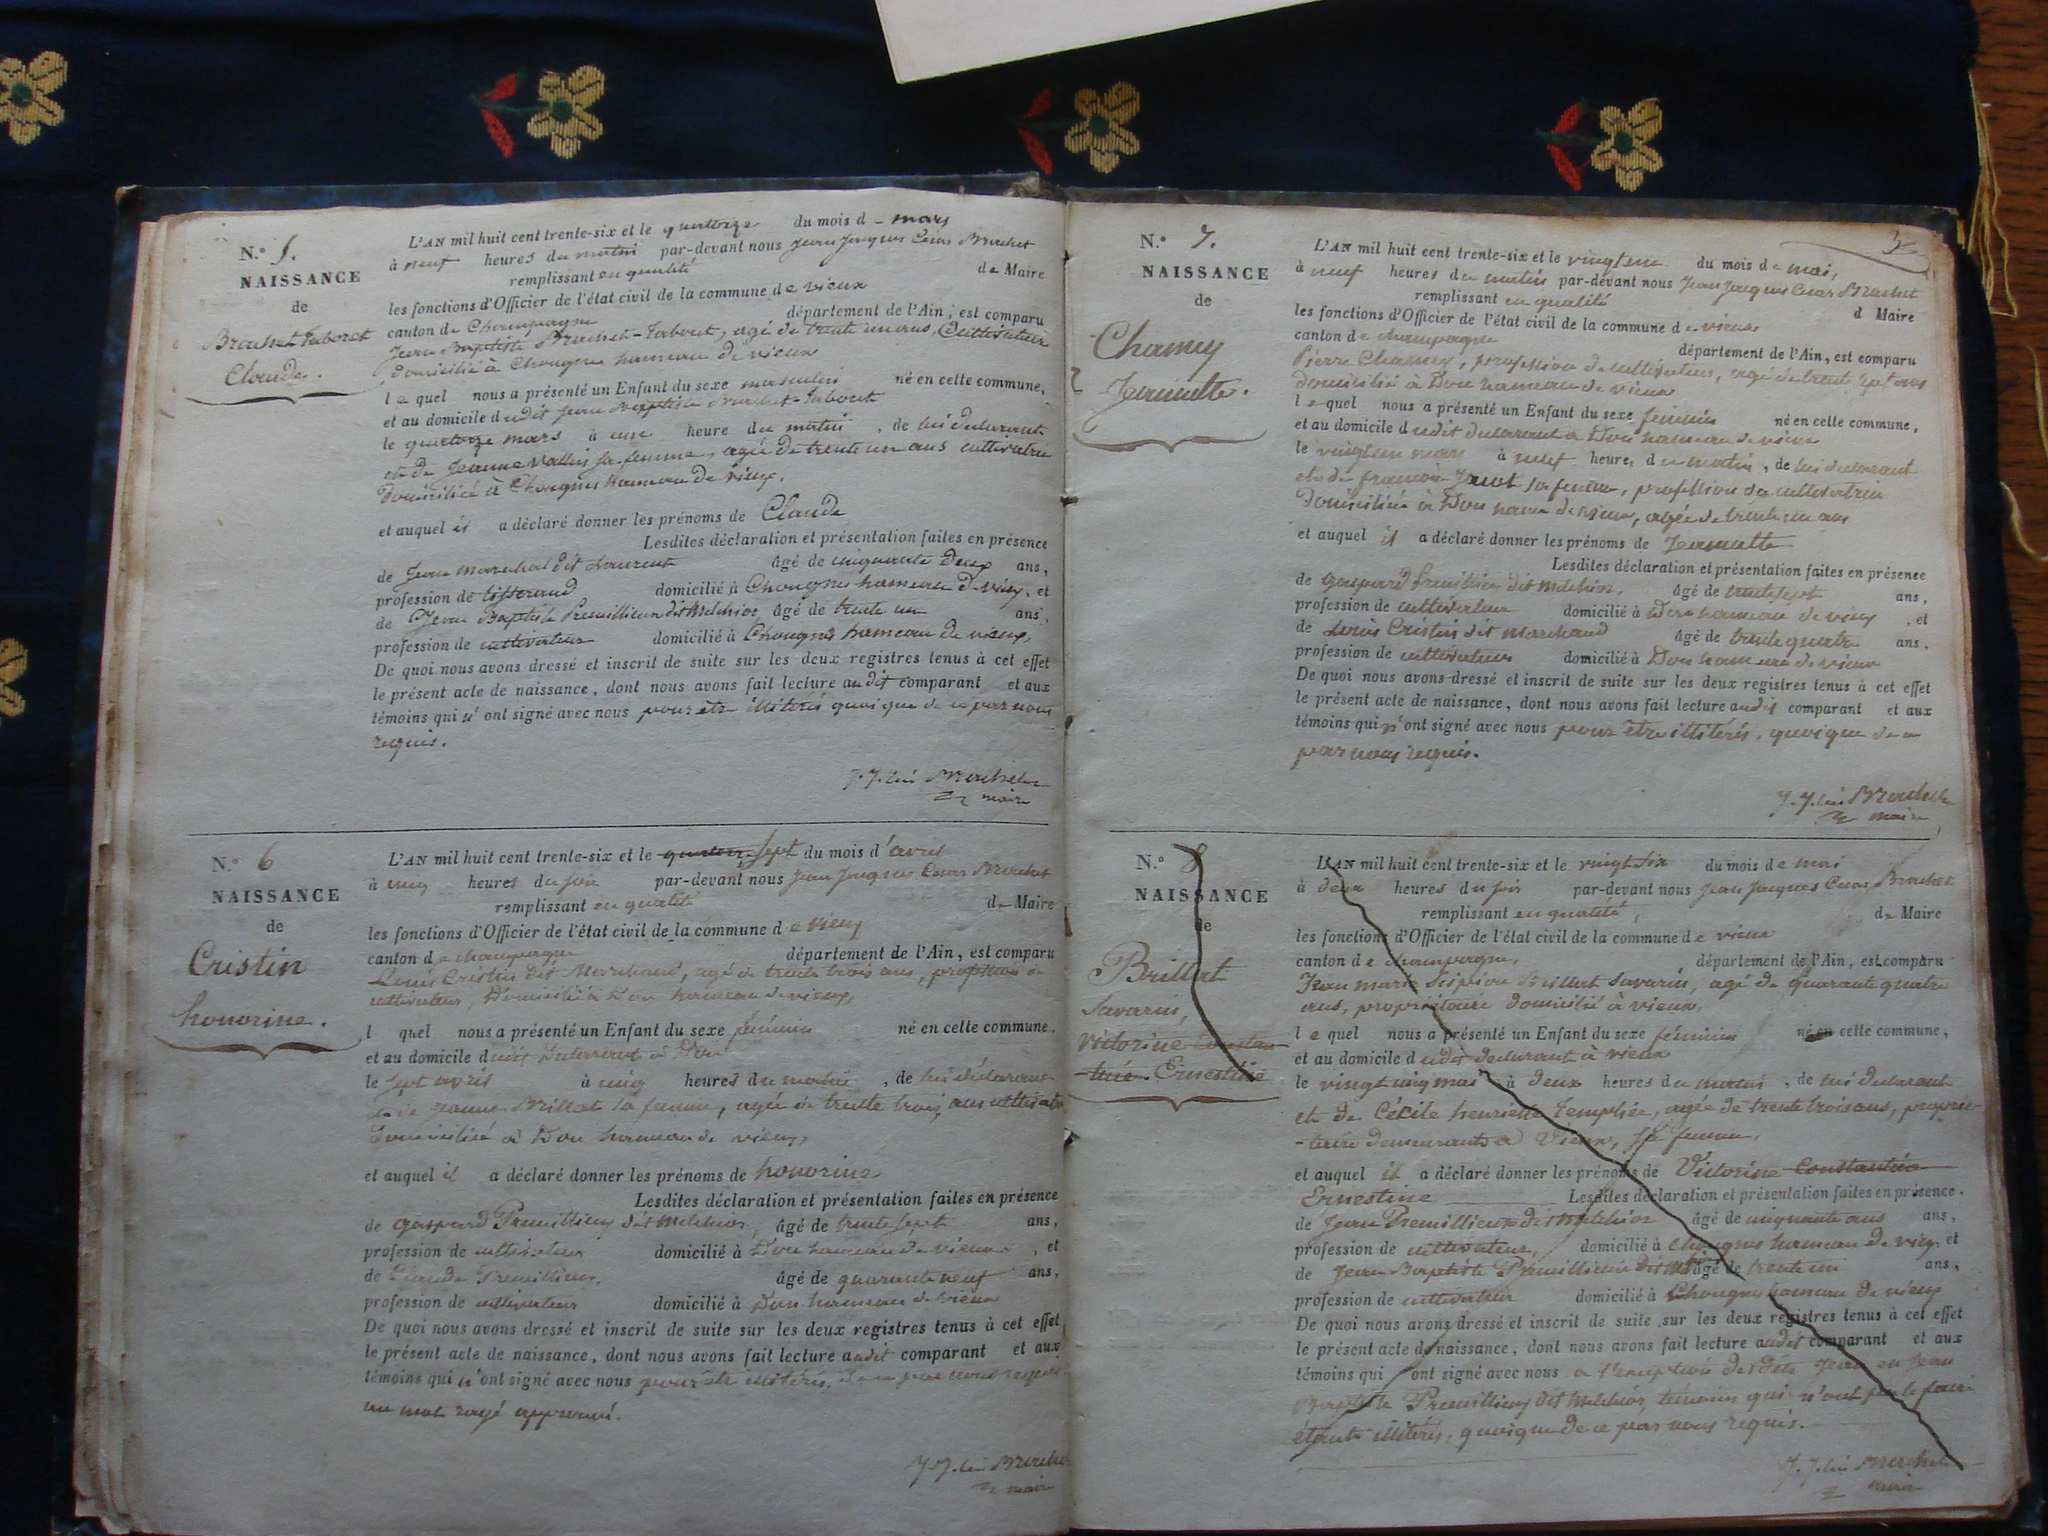 N.º 5.
NAISSANCE
de
Brachet Taboret
Claude.
L'AN mil huit cent trente-six et le quatorze du mois d - mars
à neuf heures du matin par-devant nous Jean Jaques César Brachet
remplissant en qualité de Maire
les fonctions d'Officier de l'état civil de la commune de vieux
canton de Champagne département de l'Ain, est comparu
Jean Baptiste Brachet-Tabouret, agé de trente un ans, Cultivateur
domicilié à Chongnes hameau de vieux
l e quel nous a présenté un Enfant du sexe masculin né en cette commune,
et au domicile dudit Jean Baptiste Brachet-Tabouret
le quatorze mars à une heure du matin, de lui déclarant
et de Jeanne sa femme, agée de trente un ans cultivatrice
domiciliée à Chongnes hameau de vieux,
et auquel il a déclaré donner les prénoms de Claude
Lesdites déclaration et présentation faites en présence
de Jean Marechal dit Laurent âgé de cinquante deux ans,
profession de tisserand domicilié à Chongnes hameau de vieux, et
de Jean Baptiste Premillieu dit Melchior âgé de trente un ans,
profession de cultivateur domicilié à Chongnes hameau de vieux,
De quoi nous avons dressé et inscrit de suite sur les deux registres tenus à cet effet
le présent acte de naissance, dont nous avons fait lecture audit comparant et aux
témoins qui n'ont signé avec nous pour être illitérés quoique de ce par nous
requis.
J. J. César Brachet
maire
N.º 6
NAISSANCE
de
Cristin
honorine.
L'AN mil huit cent trente-six et le quatorze sept du mois d'avril
à cinq heures du soir par-devant nous Jean Jaques César Brachet
remplissant en qualité de Maire
les fonctions d'Officier de l'état civil de la commune de vieux
canton de champagne département de l'Ain, est comparu
Louis Cristin dit Marchand, agé de trente trois ans, profession de
cultivateur, Domicilié à Don hameau de vieux,
l quel nous a présenté un Enfant du sexe féminin né en cette commune.
et au domicile dudit déclarant à Don
le sept avril à cinq heures du matin, de lui déclarant
et de Jeanne Brillat sa femme, agée de trente trois ans
Domiciliée à Don hameau de vieux,
et auquel il a déclaré donner les prénoms de honorine
Lesdites déclaration et présentation faites en présence
de gaspard Premillieu dit Melchior, âgé de trente sept ans,
profession de cultivateur domicilié à Don hameau de vieux, et
de Claude Premillieu, âgé de quarante neuf ans,
profession de cultivateur domicilié à Don hameau de vieux
De quoi nous avons dressé et inscrit de suite sur les deux registres tenus à cet effet
le présent acte de naissance, dont nous avons fait lecture audit comparant et aux
témoins qui n'ont signé avec nous pour être illitérés, de ce par nous requis
un mot rayé approuvé.
J. J. César Brachet
maire
3
N.º 7.
NAISSANCE
de
Chamey
Jeannette.
L'AN mil huit cent trente-six et le vingt un du mois de mai,
à neuf heures du matin par-devant nous Jean Jaques César Brachet
remplissant en qualité d Maire
les fonctions d'Officier de l'état civil de la commune de vieux
canton de champagne département de l'Ain, est comparu
Pierre Chamey, profession de cultivateur, agé de trente sept ans
domicilié à Don hameau de vieux
l e quel nous a présenté un Enfant du sexe féminin né en cette commune,
et au domicile dudit déclarant à Don hameau de vieux
le vingt un mai à neuf heures du matin, de lui déclarant
et de sa femme, profession de cultivatrice
domiciliée à Don hameau de vieux, agée de trente un ans
et auquel il a déclaré donner les prénoms de Jeannette
Lesdites déclaration et présentation faites en présence
de gaspard Premillieu dit Melchior, âgé de trente sept ans,
profession de cultivateur domicilié à Don hameau de vieux, et
de Louis Cristin dit Marchand âgé de trente quatre ans.
profession de cultivateur domicilié à Don hameau de vieux
De quoi nous avons dressé et inscrit de suite sur les deux registres tenus à cet effet
le présent acte de naissance, dont nous avons fait lecture audit comparant et aux
témoins qui n'ont signé avec nous pour être illitérés, quoique de ce
par nous requis.
J. J. César Brachet
maire
N.º 8
NAISSANCE
de
Brillat
Savarin,
Victorine Constan
tine. Ernestine
L'AN mil huit cent trente-six et le vingt six du mois de mai
à deux heures du soir par-devant nous Jean Jaques César Brachet
remplissant en qualité, de Maire
les fonctions d'Officier de l'état civil de la commune de vieux
canton de champagne, département de l'Ain, est comparu
Jean marie Scipion Brillat Savarin, agé de quarante quatre
ans, propriétaire domicilié à vieux,
l e quel nous a présenté un Enfant du sexe féminin né en cette commune,
et au domicile dudit déclarant à vieux
le vingt cinq mai à deux heures du matin, de lui déclarant
et de Cécile henriette Templier, agée de trente trois ans, proprié-
-taire demeurante à Vieux, sa femme,
et auquel il a déclaré donner les prénoms de Victorine Constantine
Ernestine Lesdites déclaration et présentation faites en présence.
de Jean Premillieux dit Melchior âgé de cinquante ans ans,
profession de cultivateur, domicilié à Chongnes hameau de vieux, et
de Jean Baptiste Premillieu dit âgé de trente un ans,
profession de cultivateur domicilié à Chongnes hameau de vieux
De quoi nous avons dressé et inscrit de suite sur les deux registres tenus à cet effet
le présent acte de naissance, dont nous avons fait lecture audit comparant et aux
témoins qui ont signé avec nous à l'exception desdits Jean et Jean
Baptiste Premillieux dit Melchior, témoins qui n'ont pu le faire
étant illitérés, quoique de ce par nous requis.
J. J. César Brachet
maire